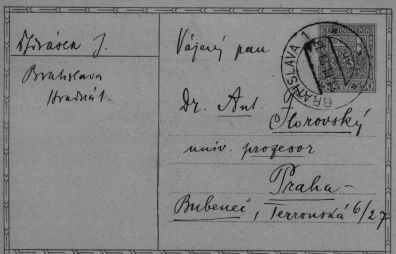 J.
Bratislava
Hradná 1.
Vážený pan
Dr. Ant.
Florovský
univ. profesor
Praha -
Bubeneč, Terronská 6/27
BRATISLAVA 1